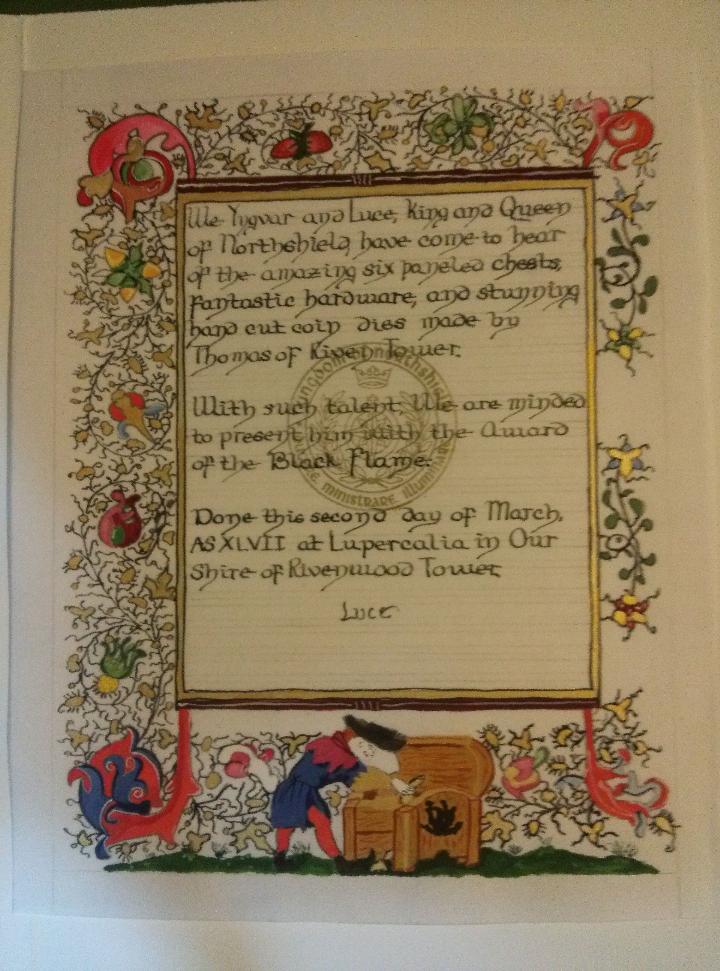 We Yngvar and Luce, King and Queen
of Northshield, have come to hear
of the amazing six paneled chests,
fantastic hardware, and stunning
hand cut coin dies made by
Thomas of Tower.
With such talent, We are minded
to present him with the Award
of the Black Flame.
Done this second day of March,
AS XLVII at Lupercalia in Our
Shire of Rivenwood Tower
Luce
Kingdom of Northshield
ministrare illuminare